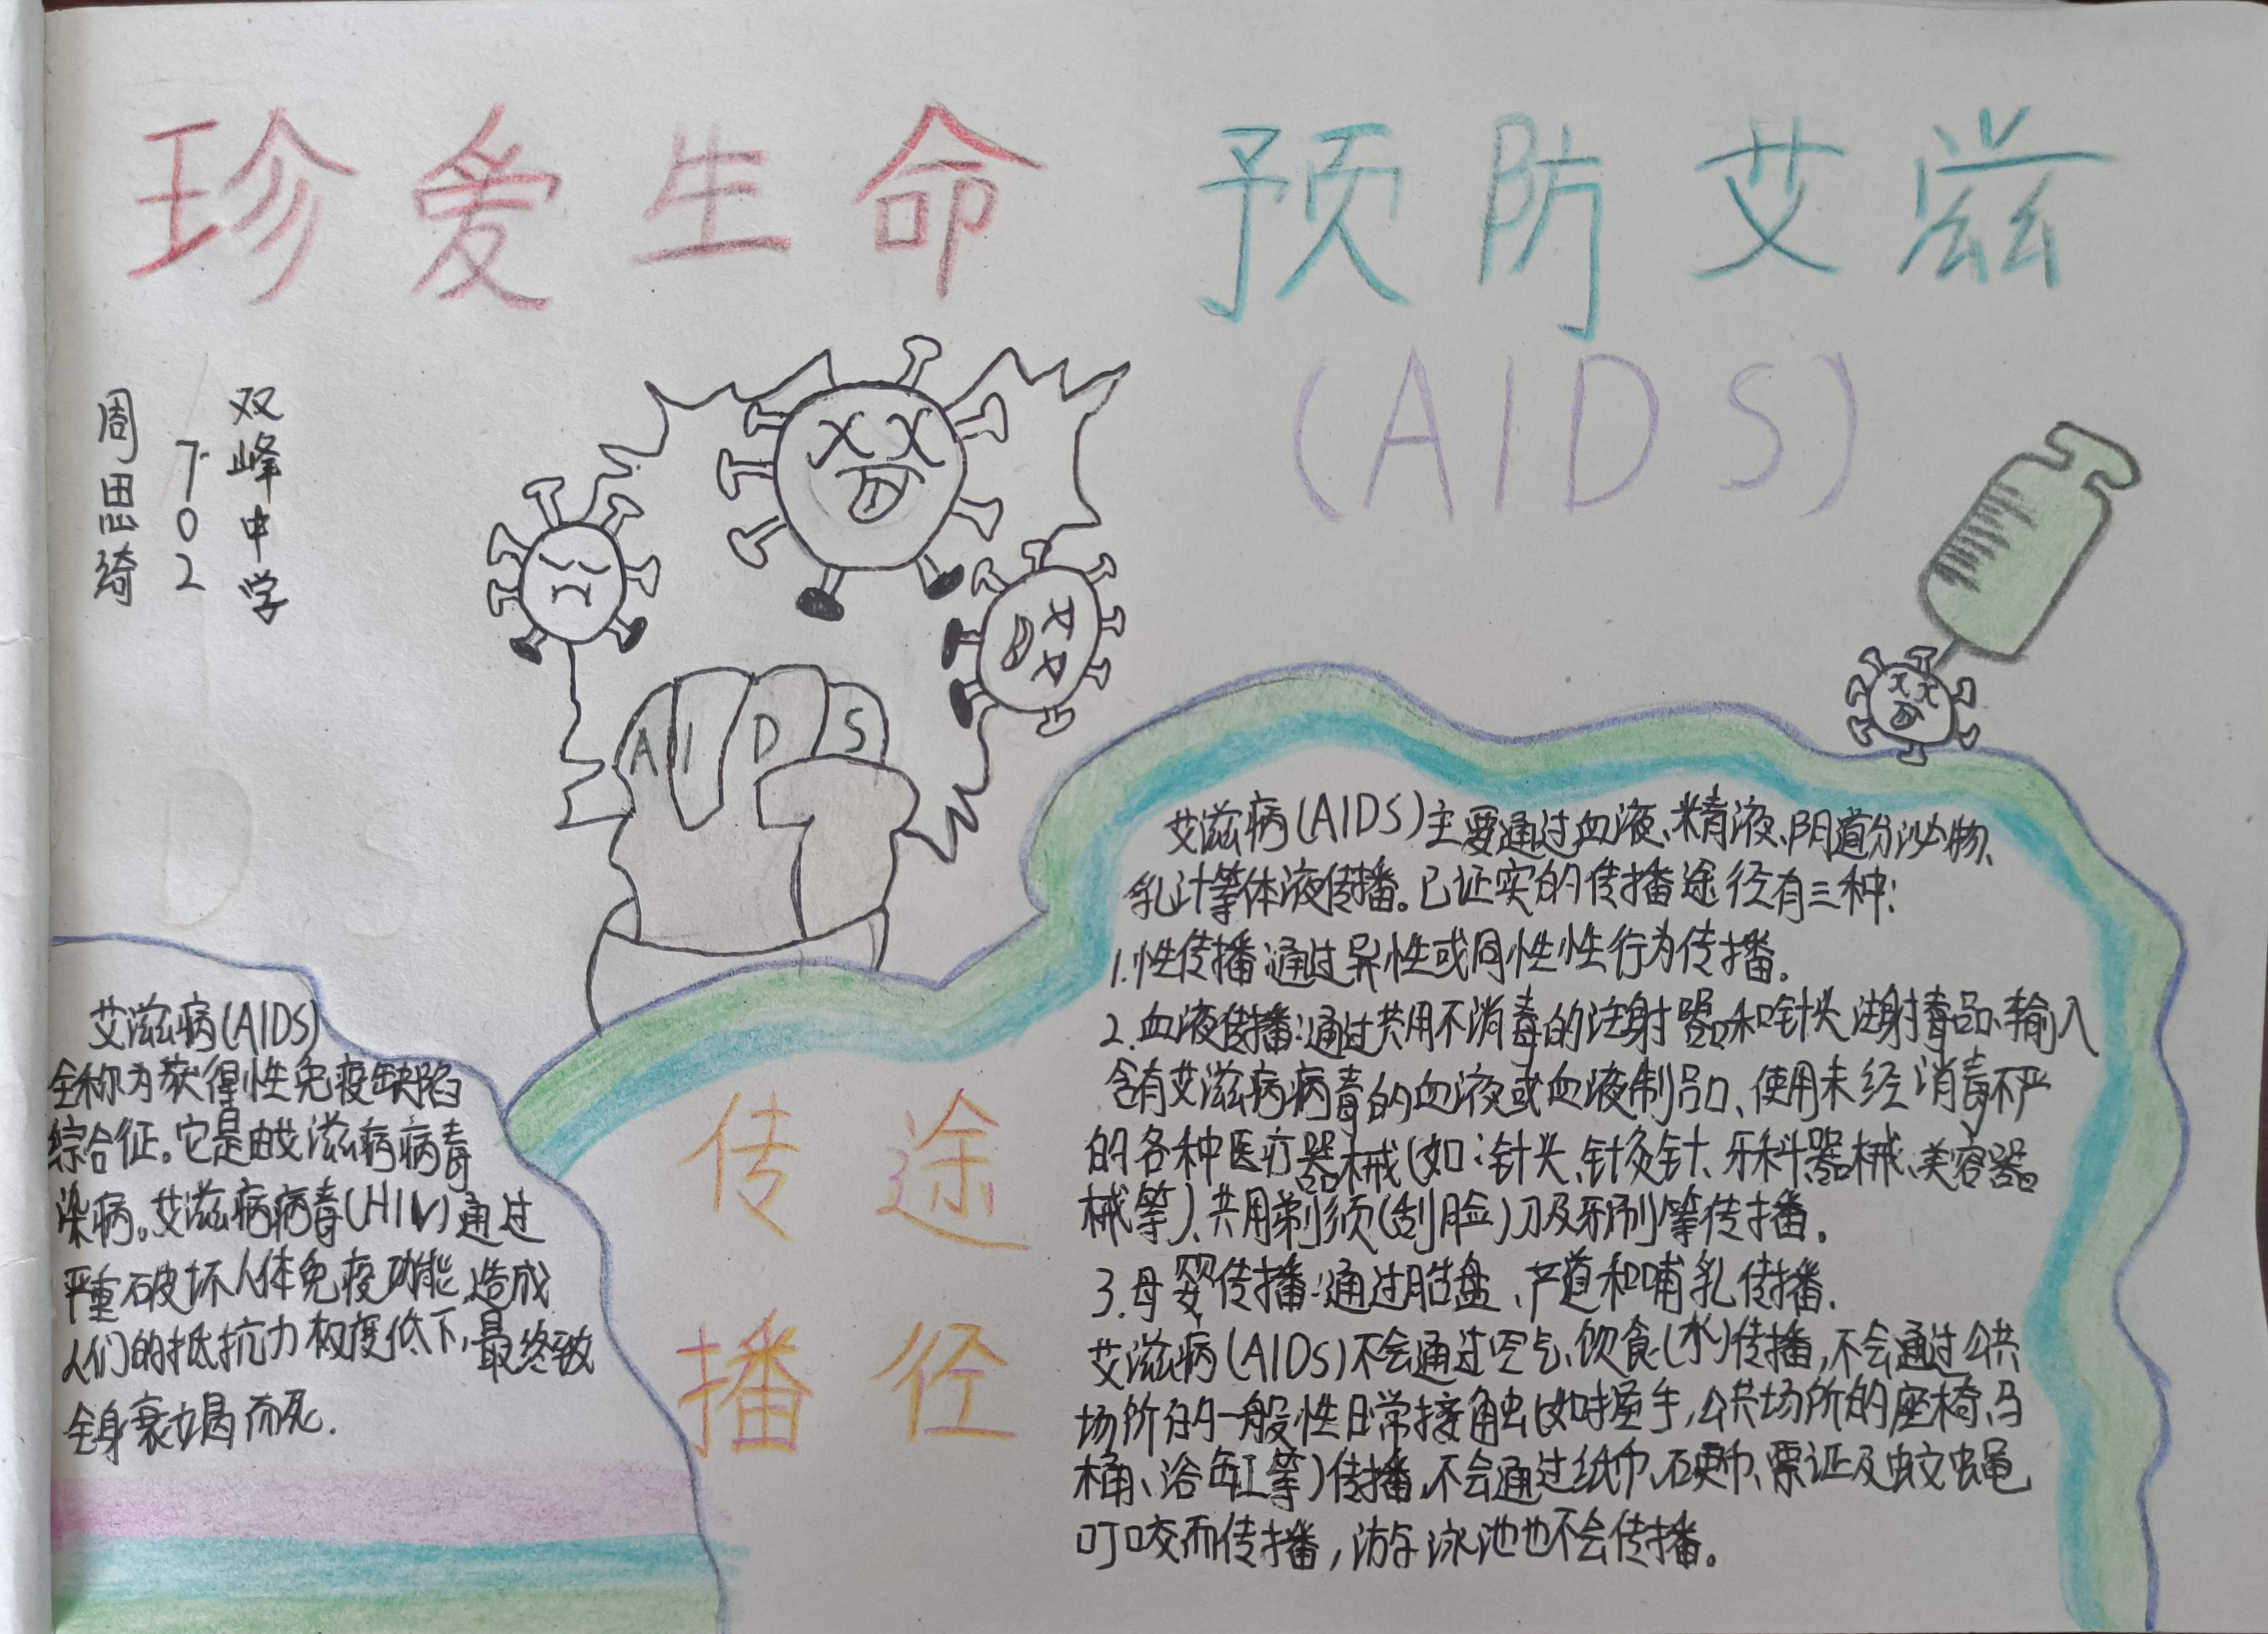 珍爱生命 预防艾滋
(AIDS)
双峰中学
702
周思琦
AIDS
艾滋病(AIDS)
全称为获得性免疫缺陷
综合征。它是由艾滋病病毒
染病。艾滋病病毒(HIV)通过
严重破坏人体免疫功能,造成
人们的抵抗力极度低下,最终致
全身衰竭而死.
传途
播径
艾滋病(AIDS)主要通过血液、精液、阴道分泌物、
乳汁等体液传播。已证实的传播途径有三种:
1.性传播:通过异性或同性性行为传播。
2.血液传播:通过共用不消毒的注射器和针头注射毒品、输入
含有艾滋病病毒的血液或血液制品、使用未经消毒不严
的各种医疗器械(如:针头、针灸针、牙科器械、美容器
械等)、共用剃须(刮脸)刀及牙刷等传播。
3.母婴传播:通过胎盘、产道和哺乳传播.
艾滋病(AIDS)不会通过空气、饮食(水)传播,不会通过公共
场所的一般性日常接触(如握手,公共场所的座椅、马
桶、浴缸等)传播,不会通过纸币、硬币、票证及蚊蝇
叮咬而传播,游泳池也不会传播。
D S